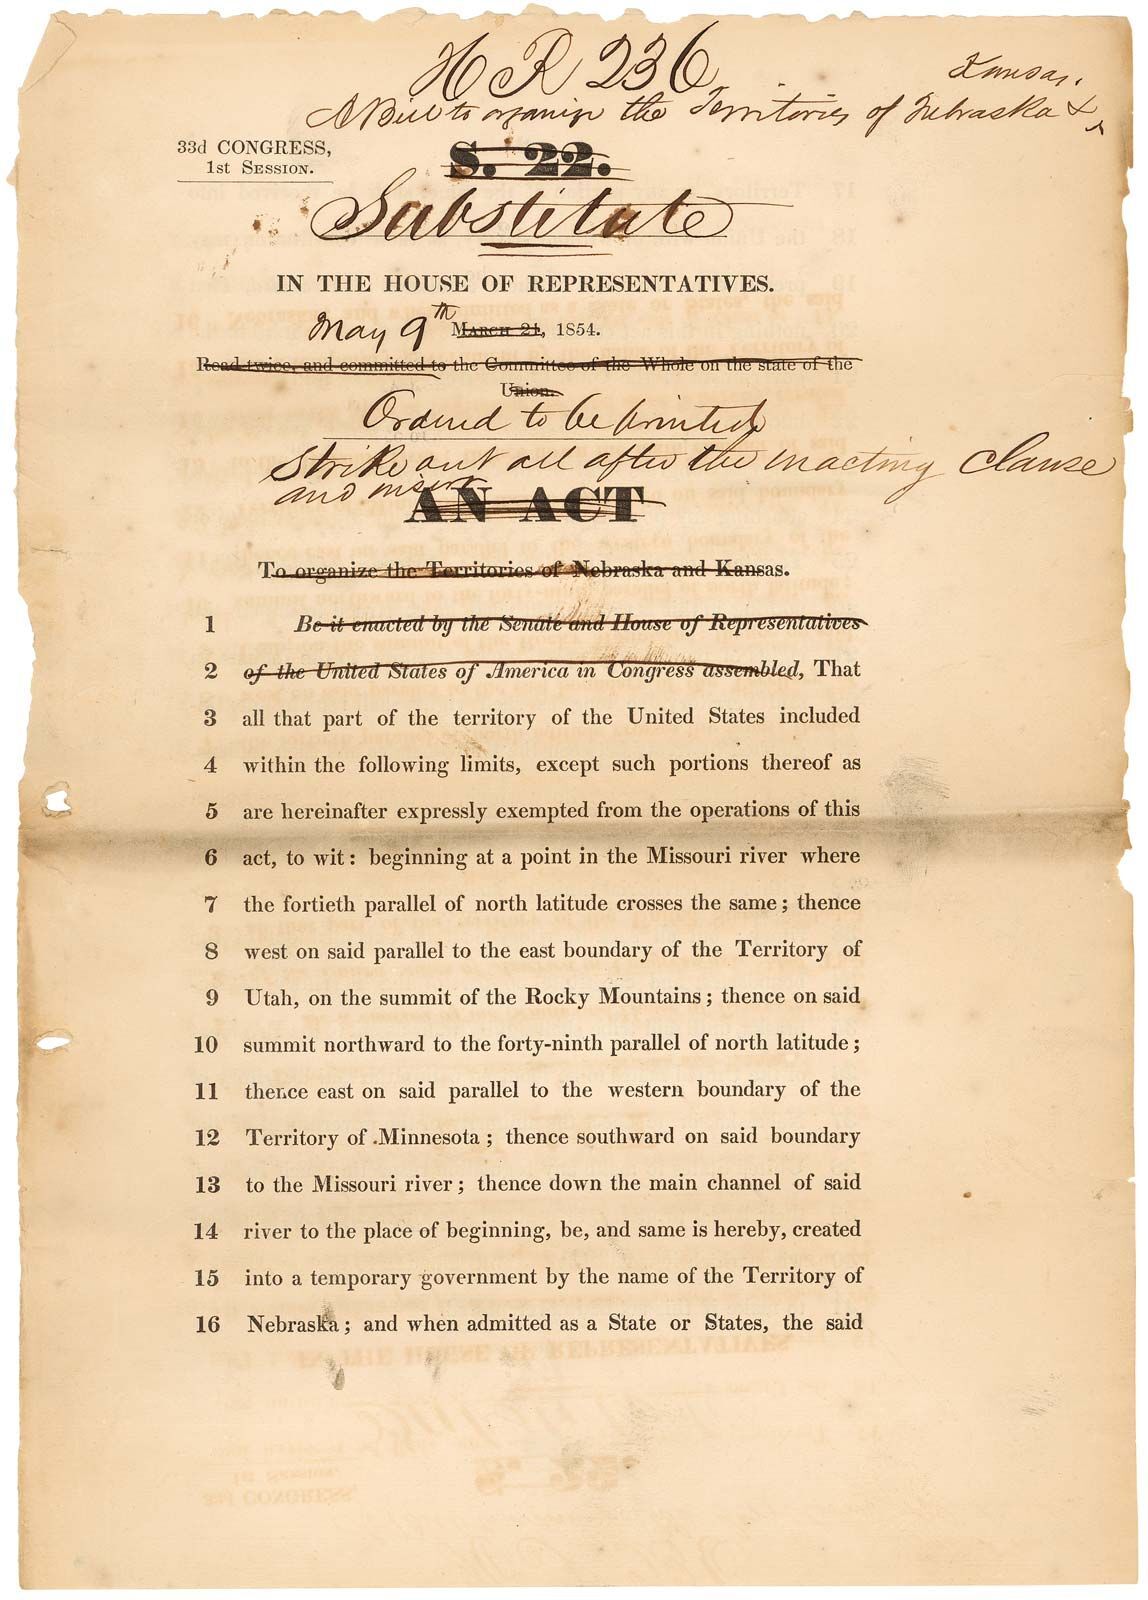 H R 236
Kansas.
A Bill to organize the Territories of Nebraska & ‸
33d CONGRESS,
1st SESSION.
S. 22.
Substitute
IN THE HOUSE OF REPRESENTATIVES.
May 9th MARCH 21, 1854.
Read twice, and committed to the Committee of the Whole on the state of the
Union.
Ordered to be printed
Strike out all after the enacting clause
and insert
AN ACT
To organize the Territories of Nebraska and Kansas.
1 Be it enacted by the Senate and House of Representatives
2 of the United States of America in Congress assembled, That
3 all that part of the territory of the United States included
4 within the following limits, except such portions thereof as
5 are hereinafter expressly exempted from the operations of this
6 act, to wit: beginning at a point in the Missouri river where
7 the fortieth parallel of north latitude crosses the same; thence
8 west on said parallel to the east boundary of the Territory of
9 Utah, on the summit of the Rocky Mountains; thence on said
10 summit northward to the forty-ninth parallel of north latitude;
11 thence east on said parallel to the western boundary of the
12 Territory of Minnesota; thence southward on said boundary
13 to the Missouri river; thence down the main channel of said
14 river to the place of beginning, be, and same is hereby, created
15 into a temporary government by the name of the Territory of
16 Nebraska; and when admitted as a State or States, the said